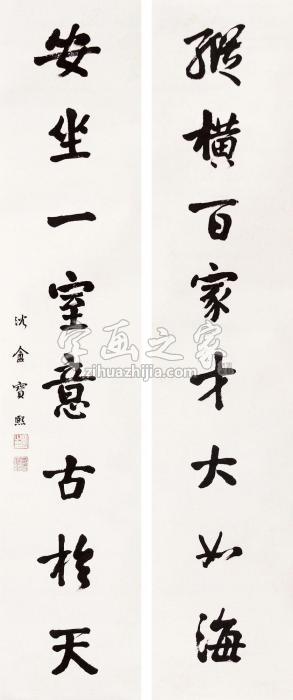 縱橫百家才大如海
安坐一室意古於天
沈盦寶熙
字画之家
zihuazhijia.com